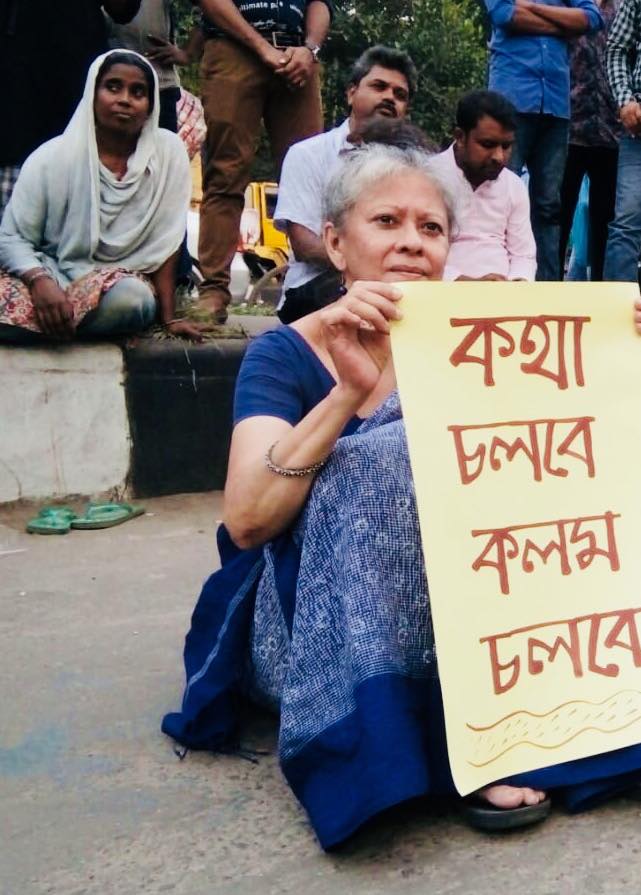 ultimate
কথা
চলবে
কলম
চলবে